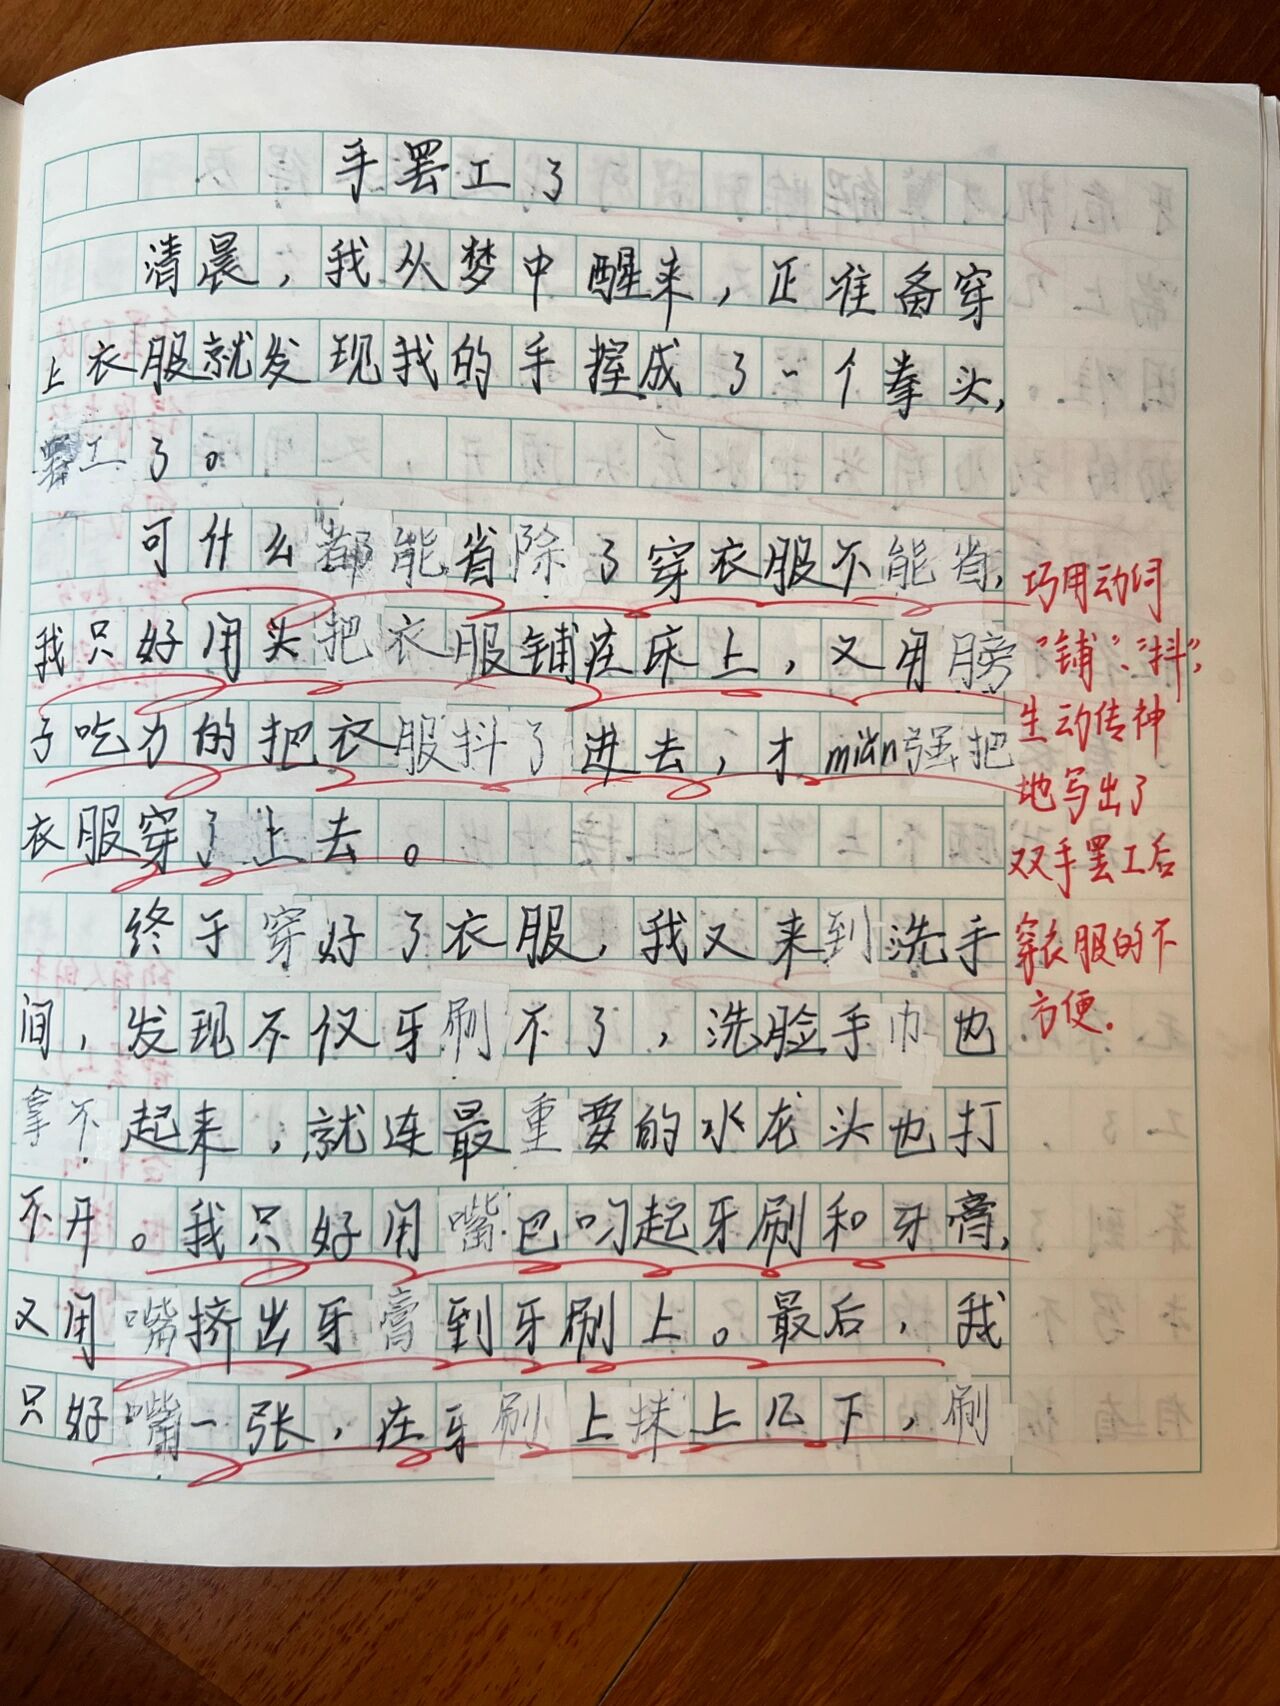 手罢工了
清晨，我从梦中醒来，正准备穿
上衣服就发现我的手握成了一个拳头，
罢工了。
可什么都能省除了穿衣服不能省，
我只好用头把衣服铺在床上，又用膀
子吃力的把衣服抖了进去，才miǎn强把
衣服穿了上去。
终于穿好了衣服，我又来到洗手
间，发现不仅牙刷不了，洗脸手巾也
拿不起来，就连最重要的水龙头也打
不开。我只好用嘴巴叼起牙刷和牙膏，
又用嘴挤出牙膏到牙刷上。最后，我
只好嘴一张，在牙刷上抹上几下，刷
巧用动词
“铺”、“抖”，
生动传神
地写出了
双手罢工后
穿衣服的不
方便.